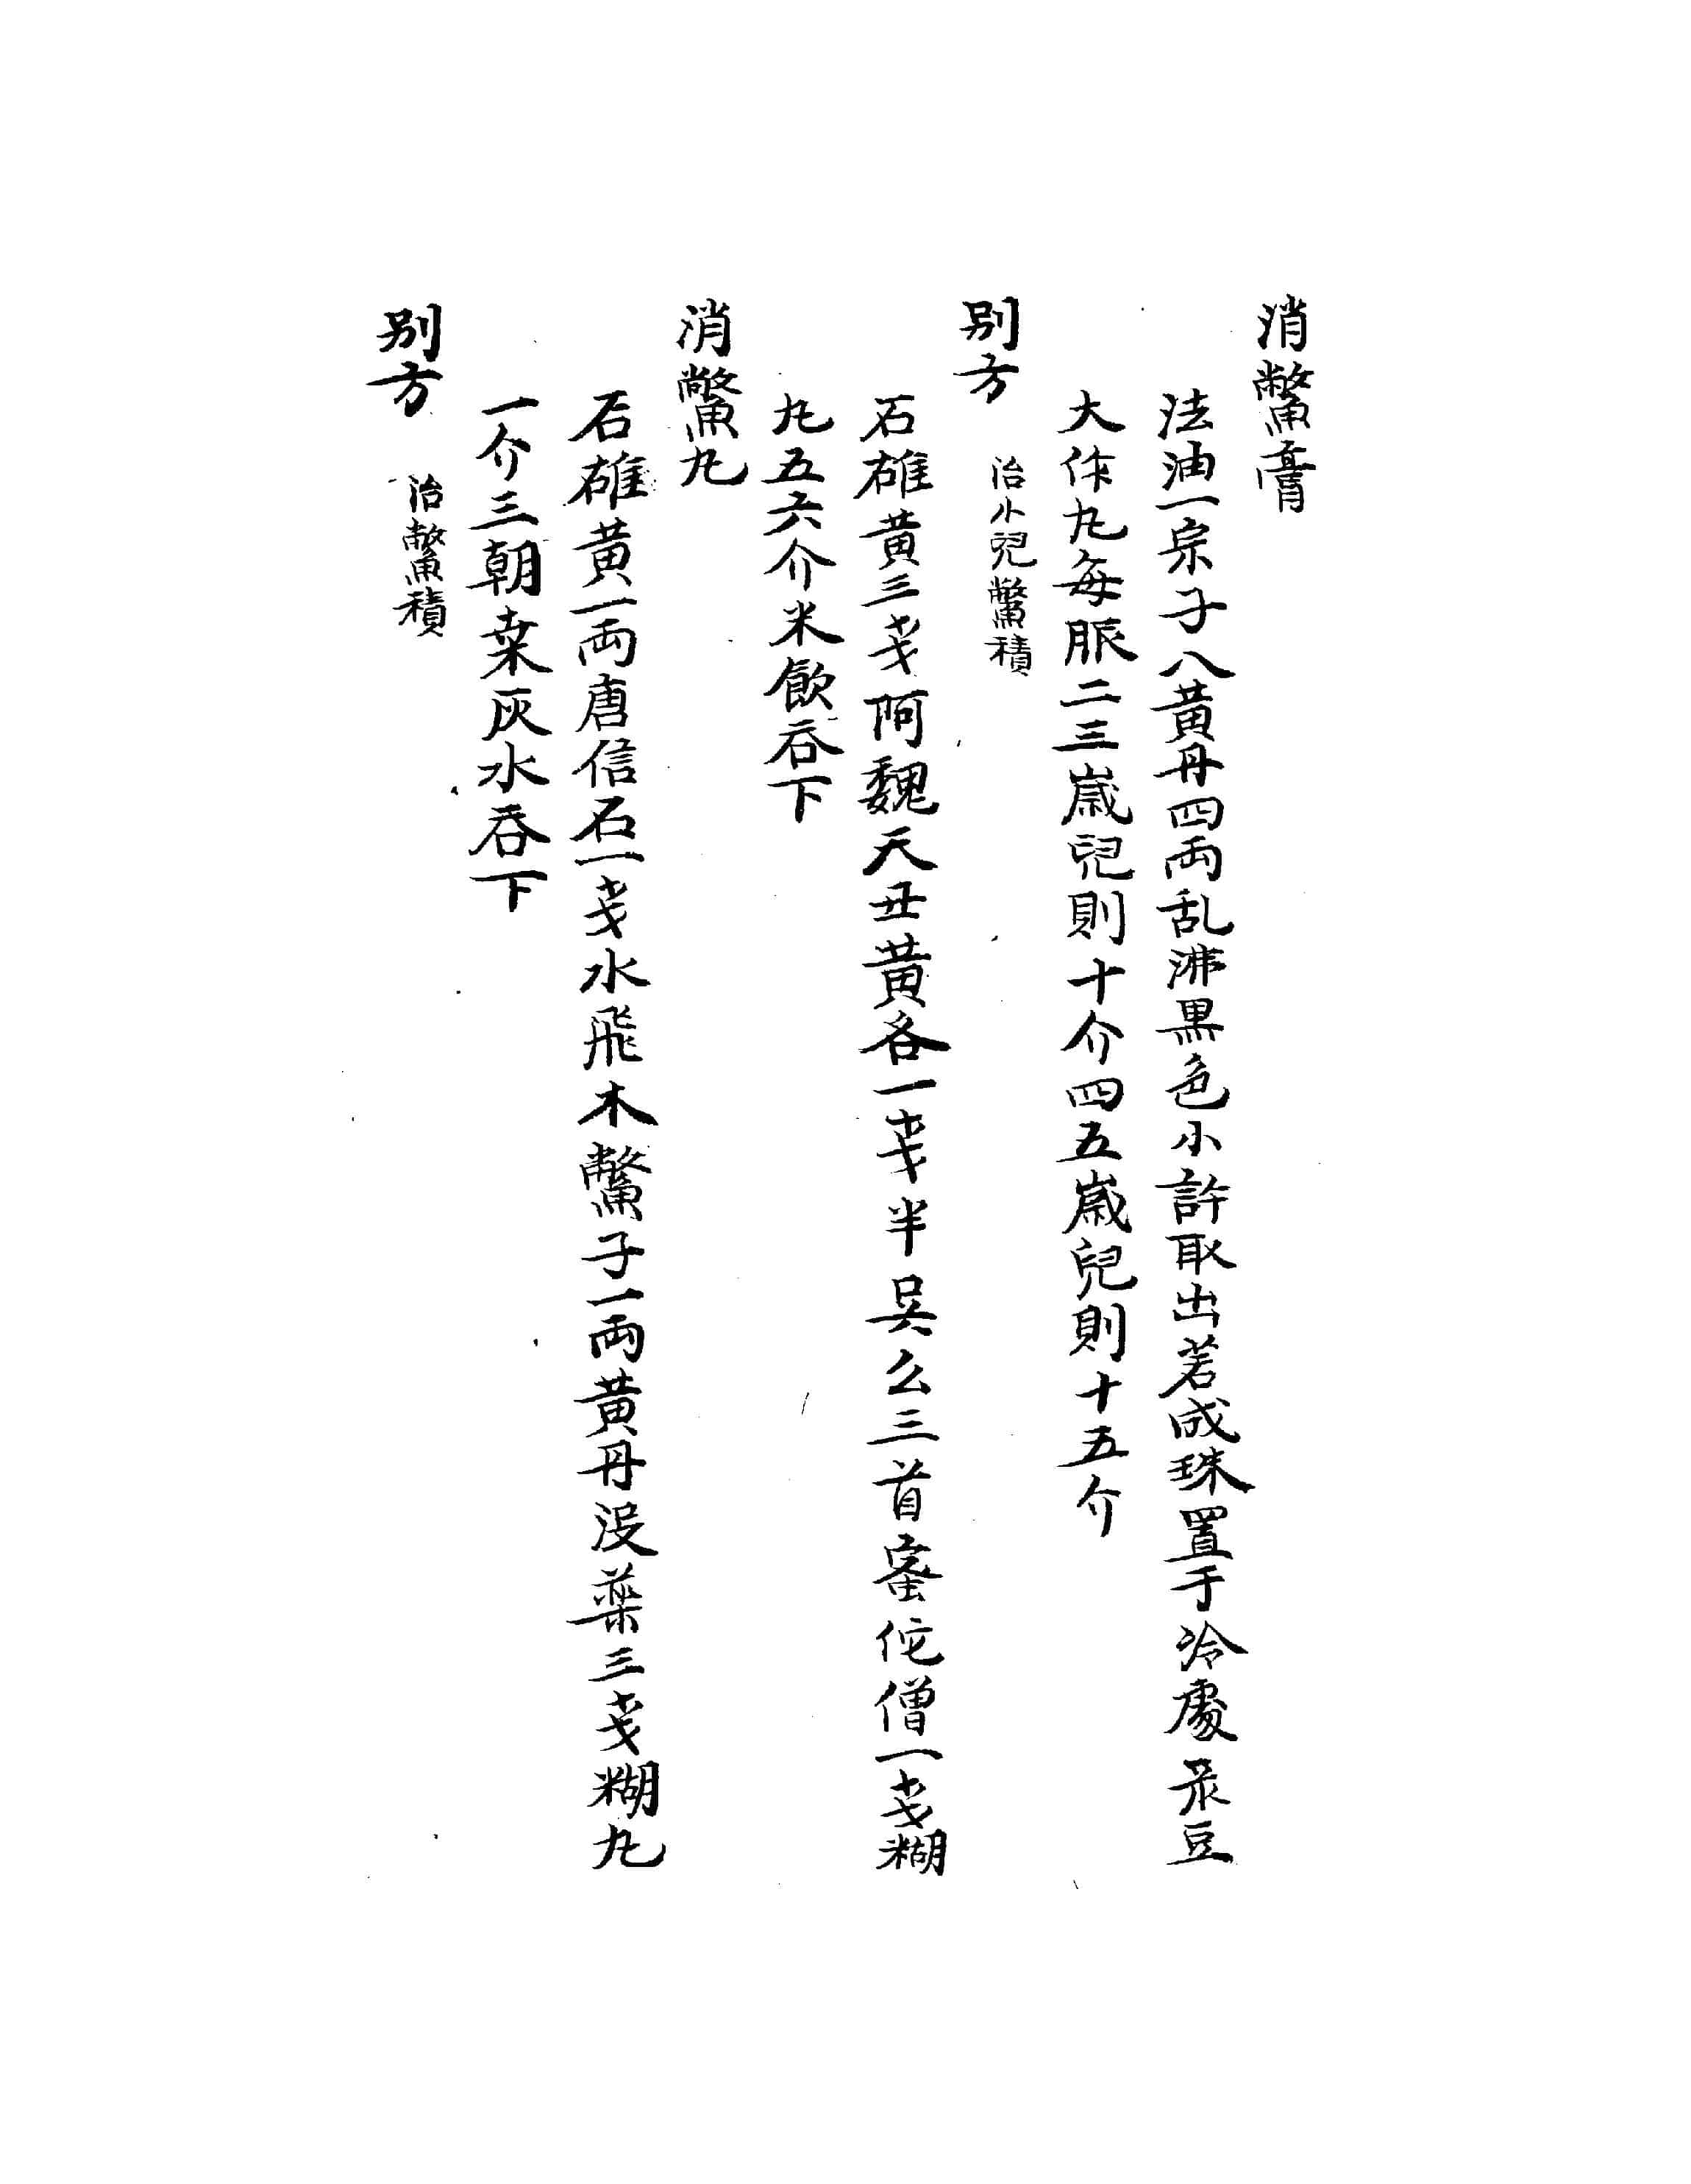 消鱉膏
法油一宗子八黃丹四両乱沸黒色小許取出若成珠置于冷處菉豆
大作丸每服二三歲兒則十介四五歲兒則十五介
别方 治小兒鱉積
石雄黃三戔阿魏天丑黃各一戔半吴么三首蜜佗僧一戔糊
丸五六介米飮吞下
消鱉丸
石雄黃一両唐信石一戔水飛木鱉子一両黃丹没藥三戔糊丸
一介三朝桒灰水吞下
别方 治鱉積